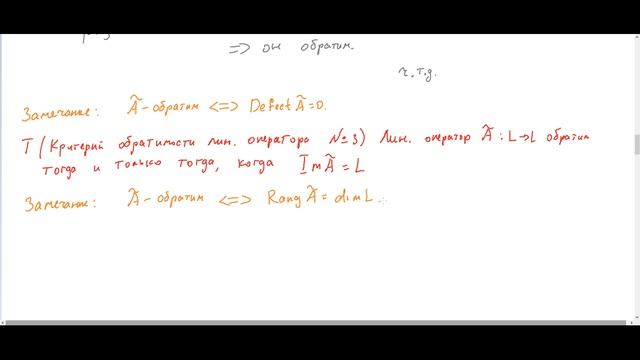 => он обратим.
ч.т.д.
Замечание: Ã - обратим <=> Defect Ã = 0.
Т (Критерий обратимости лин. оператора №3) Лин. оператор Ã : L→L обратим
тогда и только тогда, когда Im Ã = L
Замечание: Ã - обратим <=> Rang Ã = dim L.